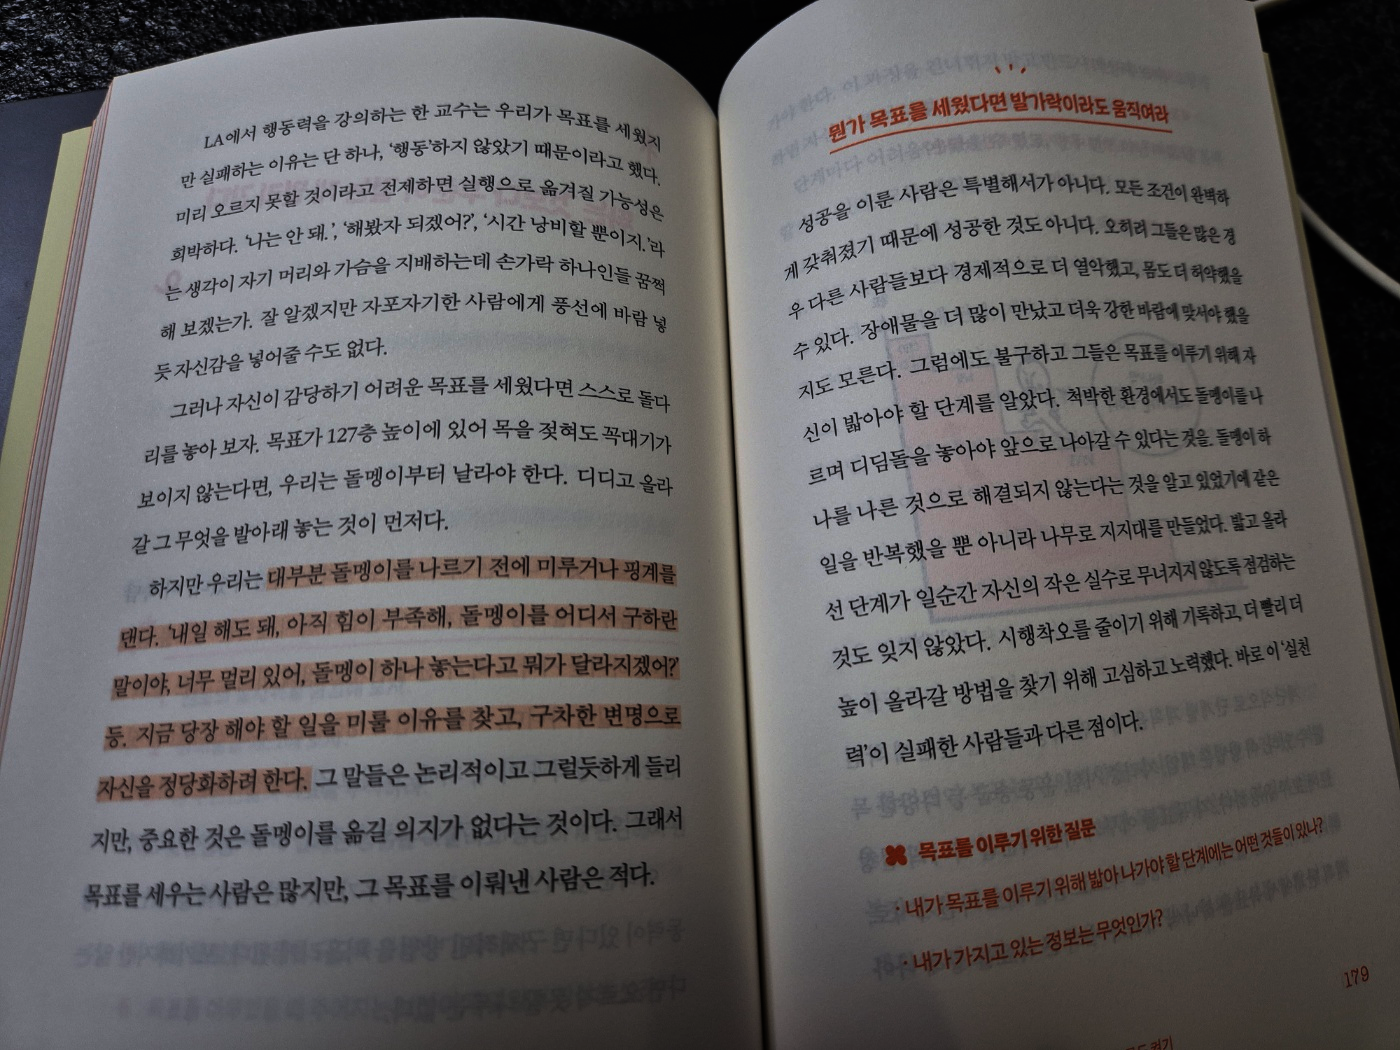 LA에서 행동력을 강의하는 한 교수는 우리가 목표를 세웠지
만 실패하는 이유는 단 하나, ‘행동’하지 않았기 때문이라고 했다.
미리 오르지 못할 것이라고 전제하면 실행으로 옮겨질 가능성은
희박하다. ‘나는 안 돼.’, ‘해봤자 되겠어?’, ‘시간 낭비할 뿐이지.’라
는 생각이 자기 머리와 가슴을 지배하는데 손가락 하나인들 꿈쩍
해 보겠는가. 잘 알겠지만 자포자기한 사람에게 풍선에 바람 넣
듯 자신감을 넣어줄 수도 없다.
그러나 자신이 감당하기 어려운 목표를 세웠다면 스스로 돌다
리를 놓아 보자. 목표가 127층 높이에 있어 목을 젖혀도 꼭대기가
보이지 않는다면, 우리는 돌멩이부터 날라야 한다. 디디고 올라
갈 그 무엇을 발아래 놓는 것이 먼저다.
하지만 우리는 대부분 돌멩이를 나르기 전에 미루거나 핑계를
댄다. ‘내일 해도 돼, 아직 힘이 부족해, 돌멩이를 어디서 구하란
말이야, 너무 멀리 있어, 돌멩이 하나 놓는다고 뭐가 달라지겠어?’
등. 지금 당장 해야 할 일을 미룰 이유를 찾고, 구차한 변명으로
자신을 정당화하려 한다. 그 말들은 논리적이고 그럴듯하게 들리
지만, 중요한 것은 돌멩이를 옮길 의지가 없다는 것이다. 그래서
목표를 세우는 사람은 많지만, 그 목표를 이뤄낸 사람은 적다.
뭔가 목표를 세웠다면 발가락이라도 움직여라
성공을 이룬 사람은 특별해서가 아니다. 모든 조건이 완벽하
게 갖춰졌기 때문에 성공한 것도 아니다. 오히려 그들은 많은 경
우 다른 사람들보다 경제적으로 더 열악했고, 몸도 더 허약했을
수 있다. 장애물을 더 많이 만났고 더욱 강한 바람에 맞서야 했을
지도 모른다. 그럼에도 불구하고 그들은 목표를 이루기 위해 자
신이 밟아야 할 단계를 알았다. 척박한 환경에서도 돌멩이를 나
르며 디딤돌을 놓아야 앞으로 나아갈 수 있다는 것을. 돌멩이 하
나를 나른 것으로 해결되지 않는다는 것을 알고 있었기에 같은
일을 반복했을 뿐 아니라 나무로 지지대를 만들었다. 밟고 올라
선 단계가 일순간 자신의 작은 실수로 무너지지 않도록 점검하는
것도 잊지 않았다. 시행착오를 줄이기 위해 기록하고, 더 빨리 더
높이 올라갈 방법을 찾기 위해 고심하고 노력했다. 바로 이 ‘실천
력’이 실패한 사람들과 다른 점이다.
목표를 이루기 위한 질문
· 내가 목표를 이루기 위해 밟아 나가야 할 단계에는 어떤 것들이 있나?
· 내가 가지고 있는 정보는 무엇인가?
179